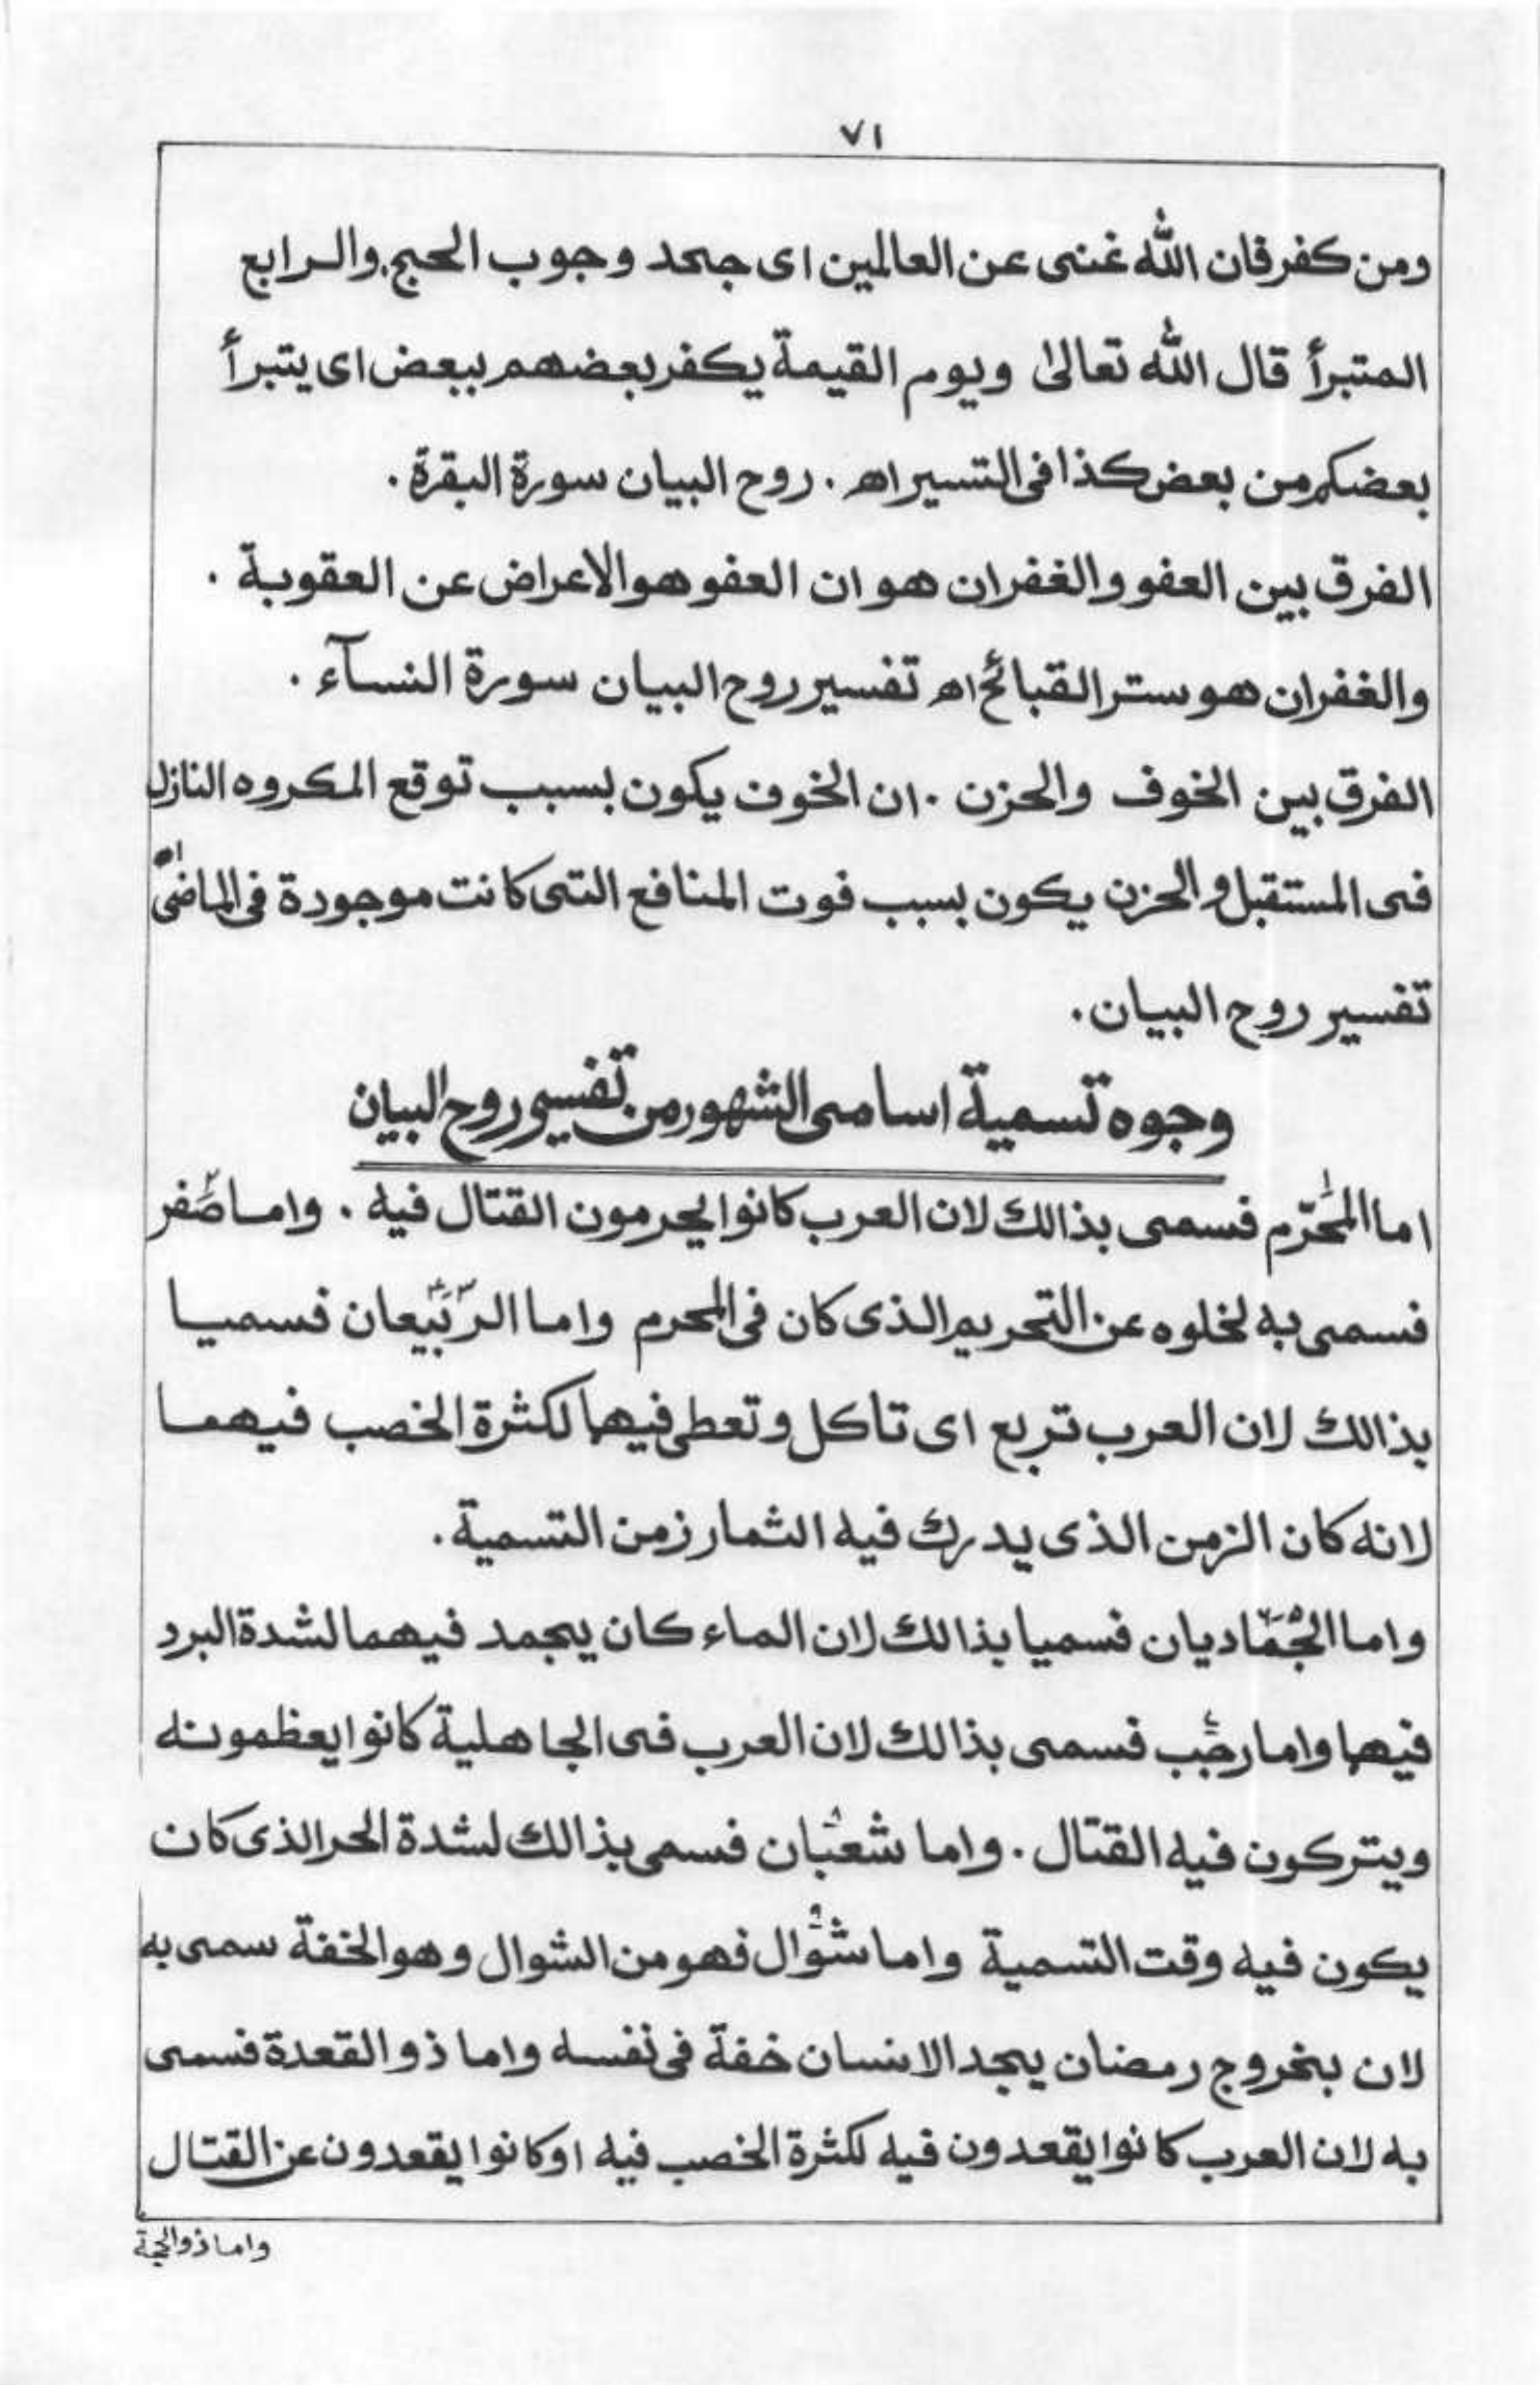 ٧١
ومن كفر فان الله غنى عن العالمين اى جحد وجوب الحج. والرابع
المتبرأ قال الله تعالىٰ ويوم القيمة يكفر بعضهم ببعض اى يتبرأ
بعضكم من بعض كذا فى التسير اھ . روح البيان سورة البقرة .
الفرق بين العفو والغفران هو ان العفو هو الاعراض عن العقوبة .
والغفران هو ستر القبائح اھ تفسير روح البيان سورة النسآء .
الفرق بين الخوف والحزن . ان الخوف يكون بسبب توقع المكروه النازل
فى المستقبل والحزن يكون بسبب فوت المنافع التى كانت موجودة فى الماضى اھ
تفسير روح البيان .
وجوه تسمية اسامى الشهور من تفسير روح البيان
اما المحَرّم فسمى بذالك لان العرب كانوا يحرمون القتال فيه . واما صَفر
فسمى به لخلوه عن التحريم الذى كان فى المحرم واما الرّبيعان فسميا
بذالك لان العرب تربع اى تاكل وتعطى فيها لكثرة الخصب فيهما
لانه كان الزمن الذى يدرك فيه الثمار زمن التسمية .
واما الجُمَاديان فسميا بذالك لان الماء كان يجمد فيهما لشدة البرد
فيها واما رجَب فسمى بذالك لان العرب فى الجاهلية كانوا يعظمونه
ويتركون فيه القتال . واما شعبان فسمى بذالك لشدة الحر الذى كان
يكون فيه وقت التسمية واما شوال فهو من الشوال وهو الخفة سمى به
لان بخروج رمضان يجد الانسان خفة فى نفسه واما ذو القعدة فسمى
به لان العرب كانوا يقعدون فيه لكثرة الخصب فيه او كانوا يقعدون عن القتال
واما ذو الحجة